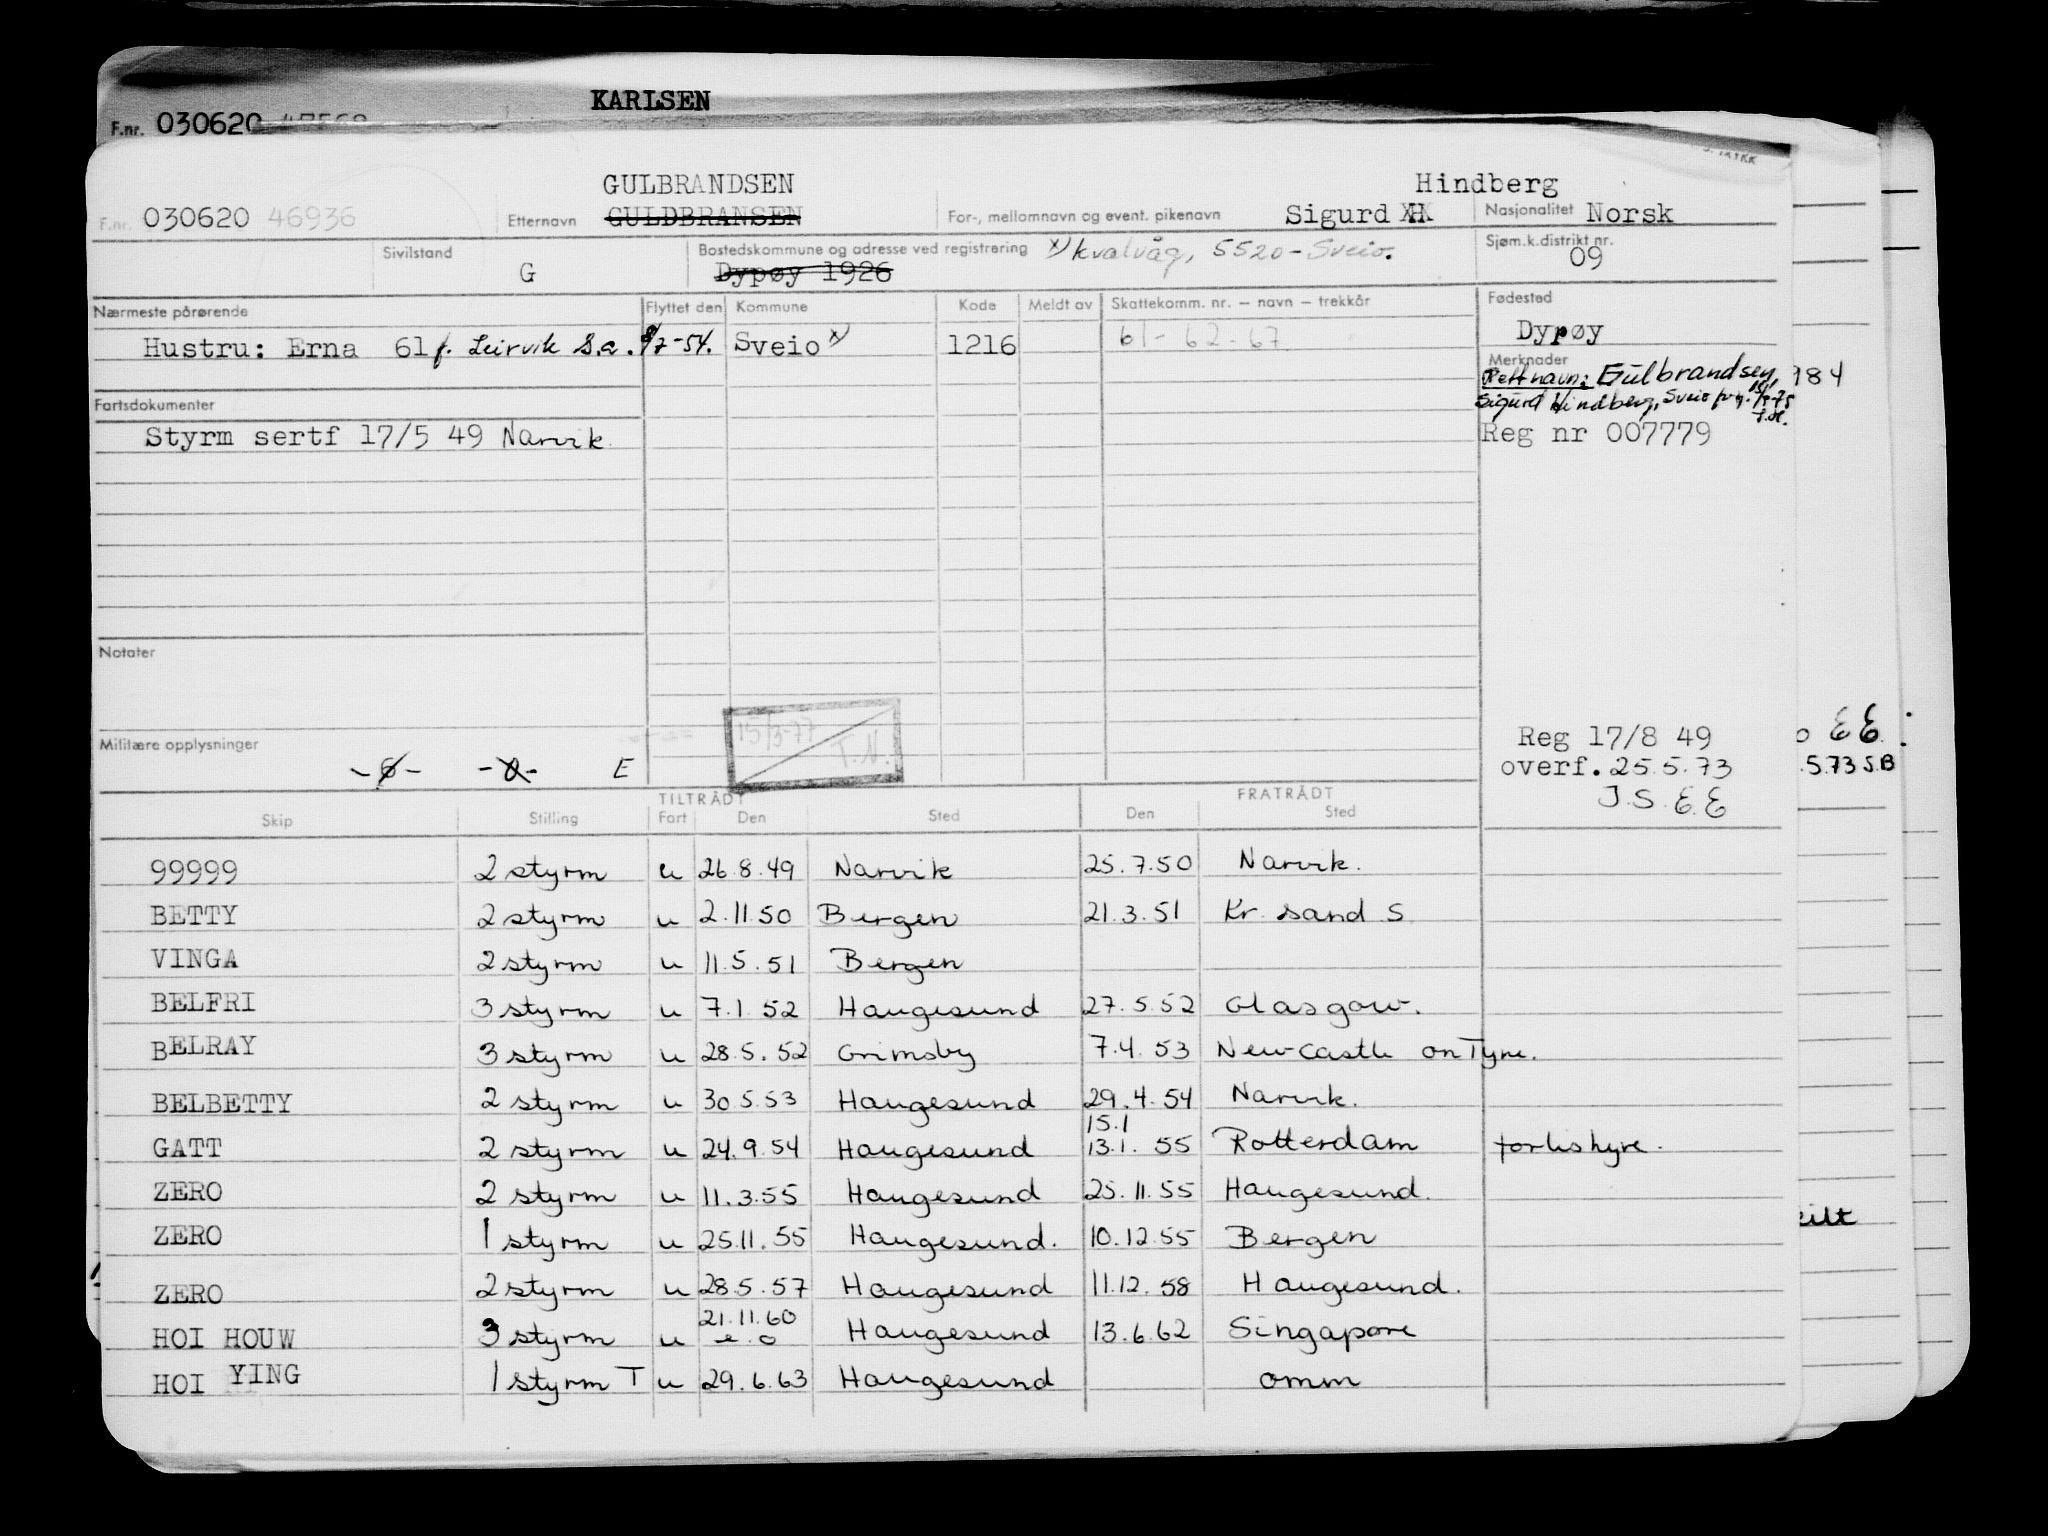 KARLSEN
F.nr. 030620
GULBRANDSEN Hindberg
F.nr. 030620 46936 Etternavn GULDBRANSEN For-, mellomnavn og event. pikenavn Sigurd Nasjonalitet Norsk
Sivilstand G Bostedskommune og adresse ved registrering x) Kvalvåg, 5520 - Sveio. Sjøm.k.distrikt nr. 09
Dypøy 1926
Nærmeste pårørende Flyttet den Kommune Kode Meldt av Skattekomm. nr. — navn — trekkår Fødested
Hustru: Erna 61 f. Leirvik S.a. 7-54. Sveio x) 1216 61-62-67 Dypøy
Merknader
Rett navn: Gulbrandsen, 984
Sigurd Hindberg, Sveio
Fartsdokumenter
Styrm sertf 17/5 49 Narvik Reg nr 007779
Notater
15/3-77
T.N.
Militære opplysninger E
Reg 17/8 49 EE
overf. 25.5.73 .5.73 S.B
J.S. EE
TILTRÅDT FRATRÅDT
Skip Stilling Fart Den Sted Den Sted
99999 2 styrm u 26.8.49 Narvik 25.7.50 Narvik.
BETTY 2 styrm u 2.11.50 Bergen 21.3.51 Kr. sand S
VINGA 2 styrm u 11.5.51 Bergen
BELFRI 3 styrm u 7.1.52 Haugesund 27.5.52 Glasgow.
BELRAY 3 styrm u 28.5.52 Grimsby 7.4.53 Newcastle on Tyne.
BELBETTY 2 styrm u 30.5.53 Haugesund 29.4.54 Narvik.
15.1
GATT 2 styrm u 24.9.54 Haugesund 13.1.55 Rotterdam forlishyre.
ZERO 2 styrm u 11.3.55 Haugesund 25.11.55 Haugesund.
ZERO 1 styrm u 25.11.55 Haugesund. 10.12.55 Bergen
ZERO 2 styrm u 28.5.57 Haugesund 11.12.58 Haugesund.
21.11.60
HOI HOUW 3 styrm u e.o Haugesund 13.6.62 Singapore
HOI YING 1 styrm T u 29.6.63 Haugesund omm